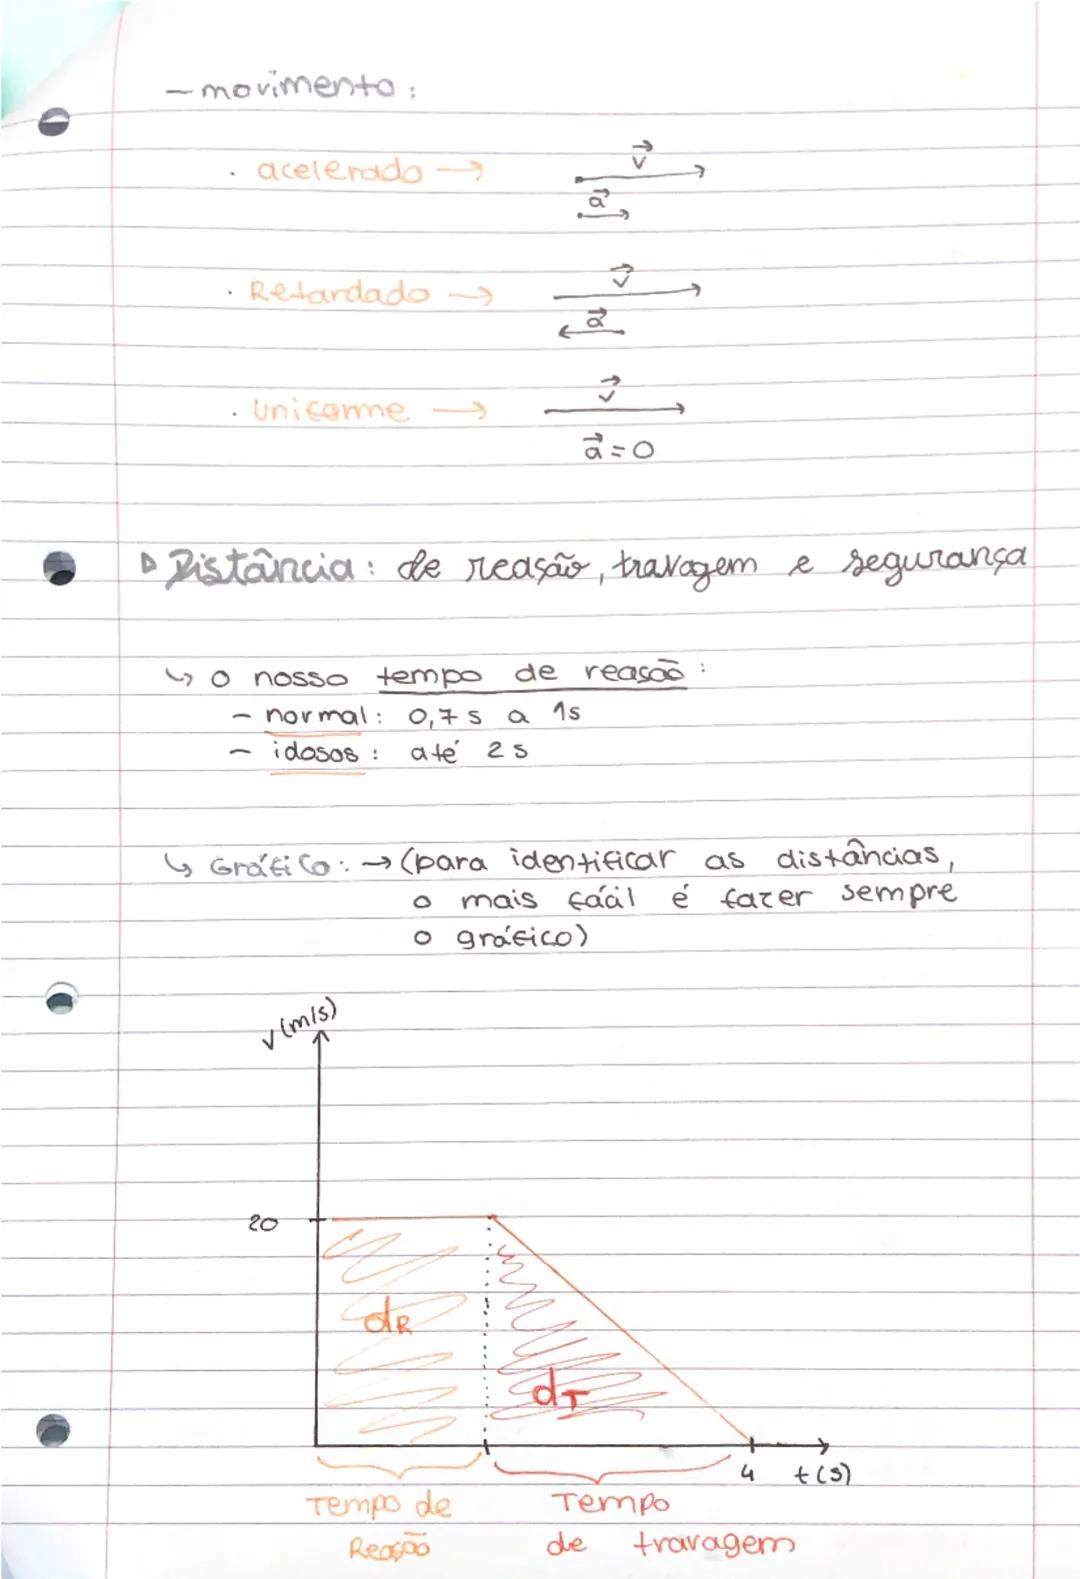 - movimento:
. acelerado → v⃗
a⃗
. Retardado → v⃗
a⃗
. Uniforme → v⃗
a⃗ = 0
▷ Distância: de reação, travagem e segurança
↳ O nosso tempo de reação:
- normal: 0,7 s a 1s
- idosos: até 2 s
↳ Gráfico: → (para identificar as distâncias,
o mais fácil é fazer sempre
o gráfico)
v (m/s)
20
dR
dT
4 t (s)
Tempo de Reação
Tempo de travagem